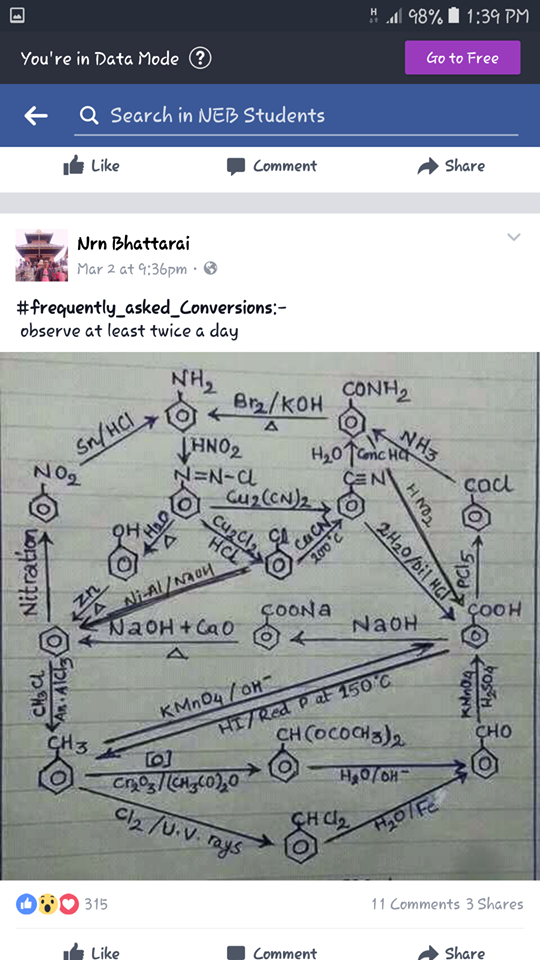 H 98% 1:39 PM
You're in Data Mode ? Go to Free
Search in NEB Students
Like Comment Share
Nrn Bhattarai
Mar 2 at 9:36pm
#frequently_asked_Conversions:-
observe at least twice a day
NH2
Br2/KOH
Δ
CONH2
Sn/HCl
HNO2
H2O
Conc HCl
NH3
NO2
N=N-Cl
Cu2(CN)2
C≡N
HNO2
COCl
OH
H2O
Δ
Cu2Cl2
HCl
Cl
CuCN
200°C
2H2O/Dil HCl
PCl5
Nitration
Zn
Δ
Ni-Al/NaOH
NaOH+CaO
Δ
COONa
NaOH
COOH
CH3Cl
An.AlCl3
KMnO4/OH-
HI/Red P at 150°C
KMnO4
H2SO4
CH3
[O]
Cr2O3/(CH3CO)2O
CH(OCOCH3)2
H2O/OH-
CHO
Cl2/U.V. rays
CHCl2
H2O/Fe
315 11 Comments 3 Shares
Like Comment Share